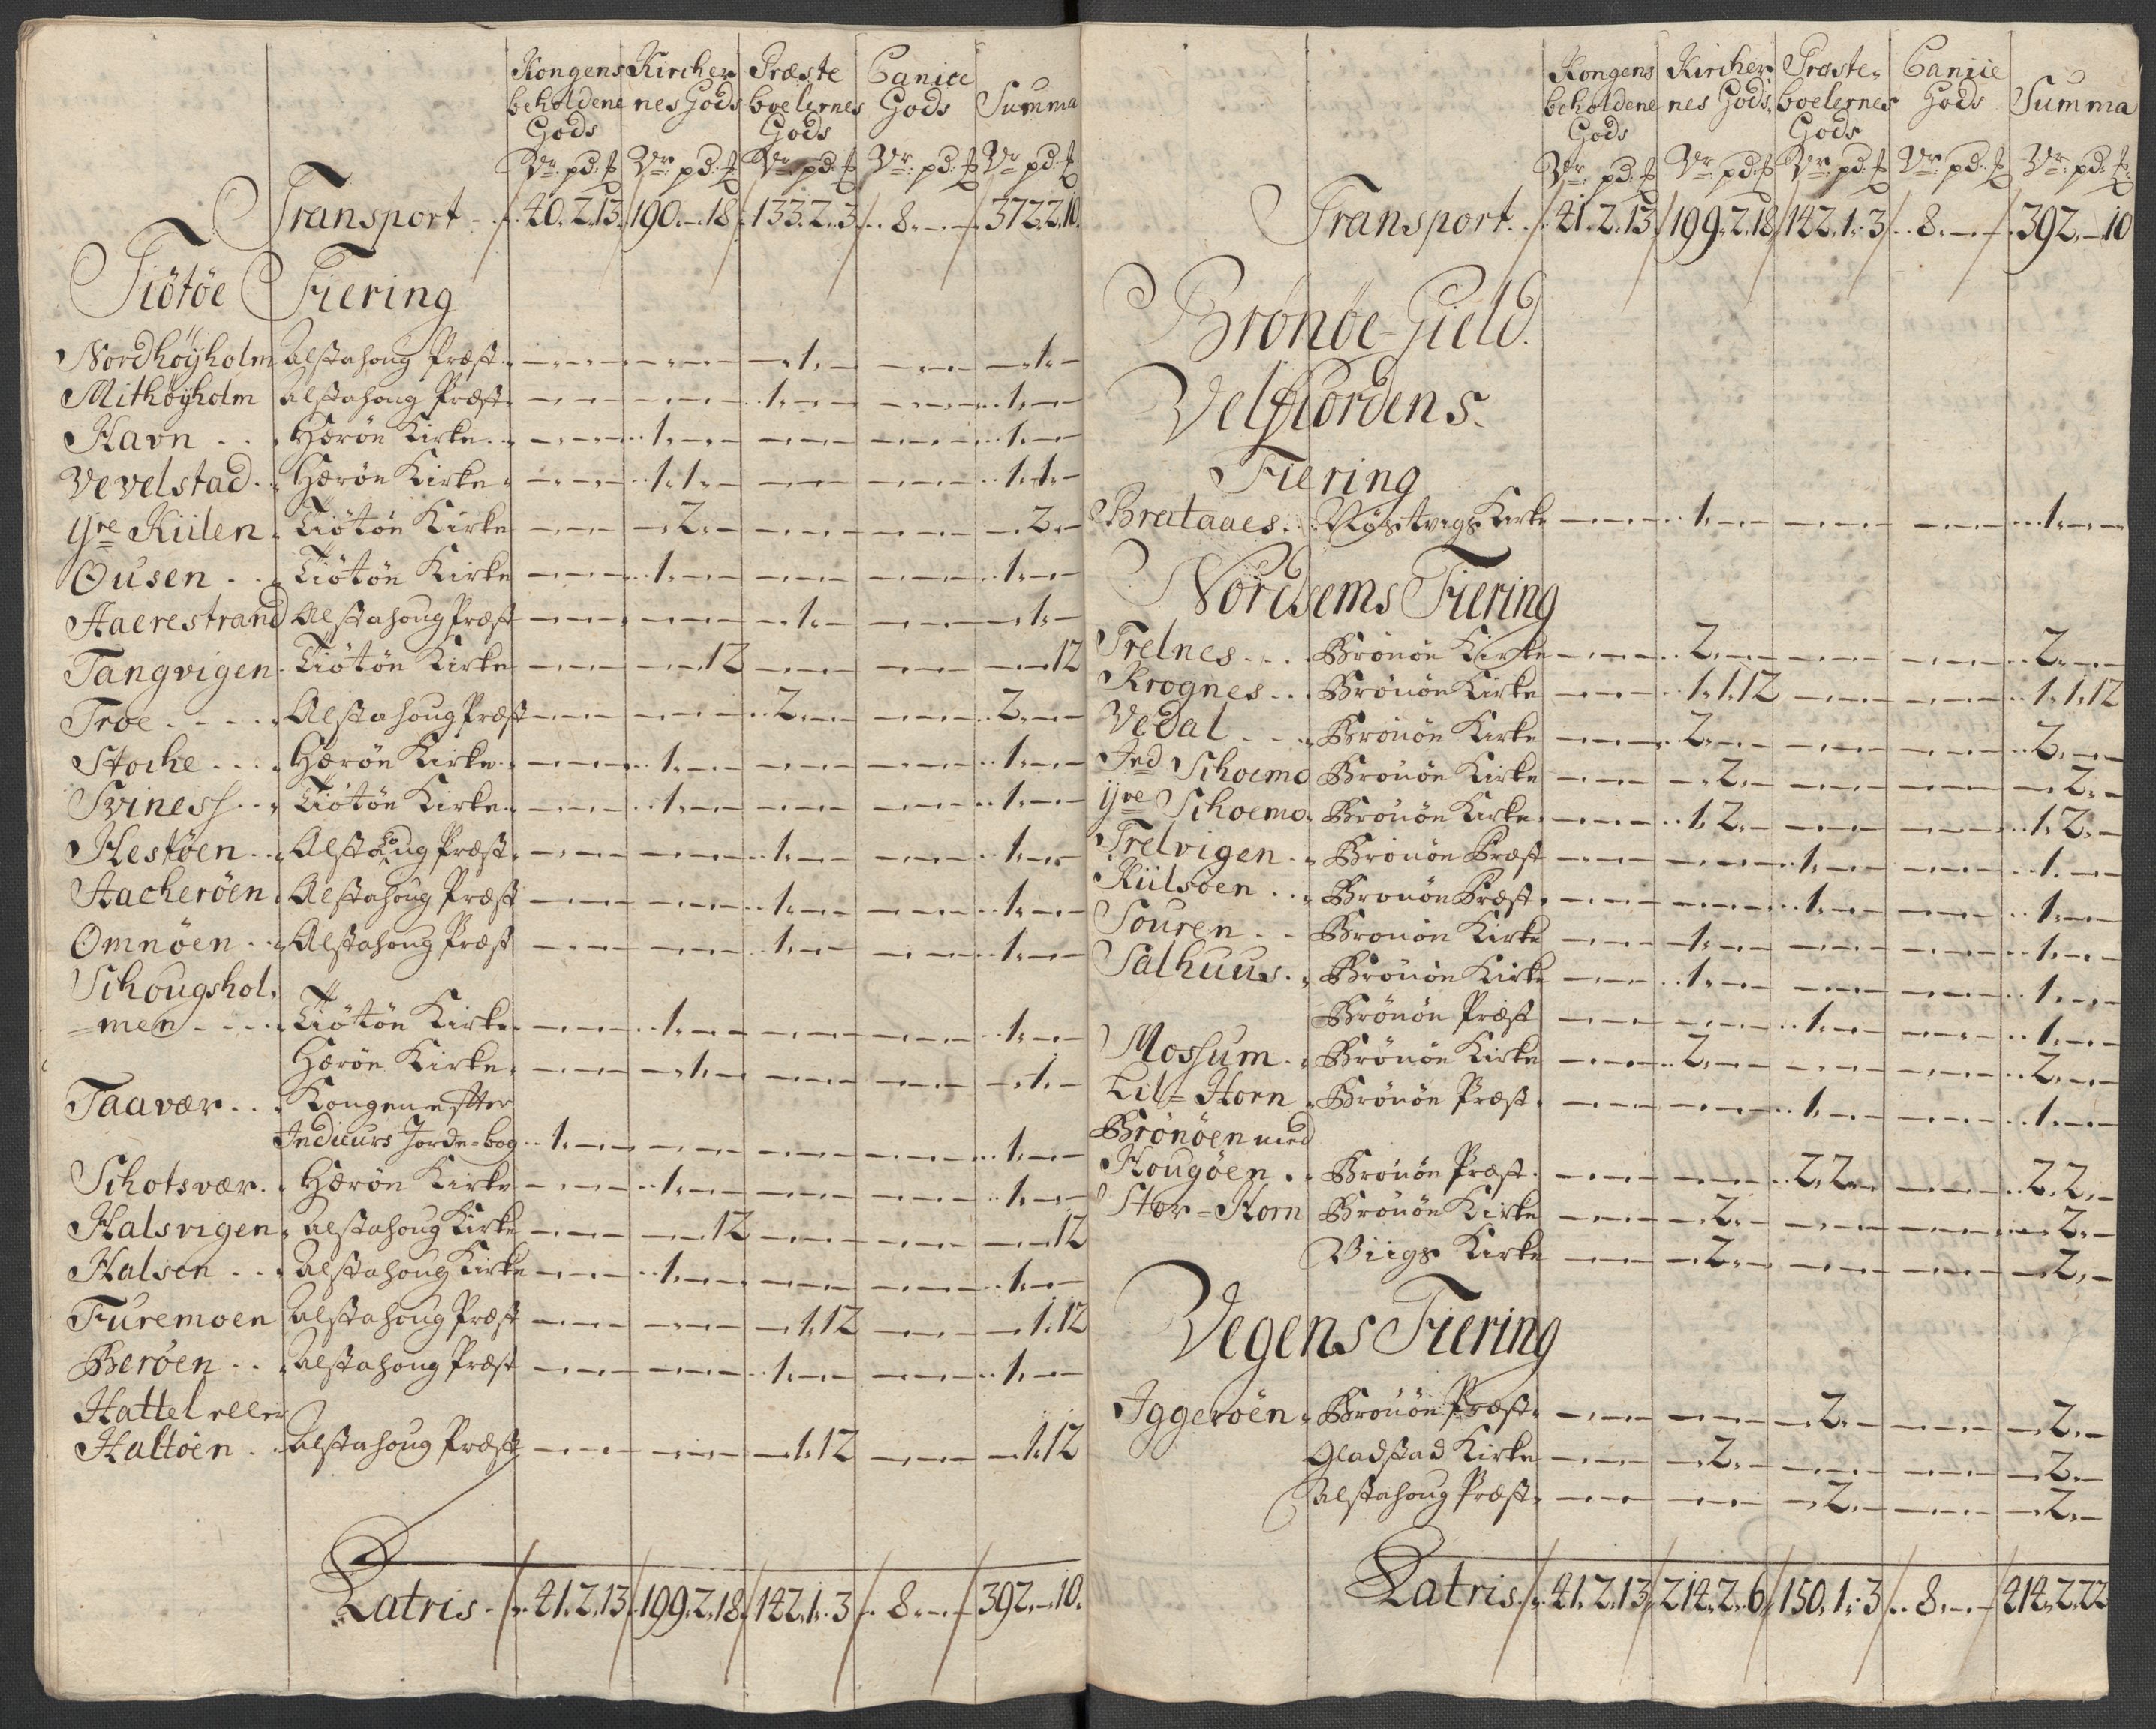 Kongens Kircher Præste Canice
beholdene nes Gods boelernes Gods Summa
Gods Gods
Vr: pd: Vr: pd: Vr: pd: Vr: pd: Vr pd:
Transport - 40. 2. 13. 190. - 18. 133. 2. 3. 8. - - 372. 2. 10.
Tiøtøe Fiering
Nordhøyholm Alstahoug Præst - - - - - - - 1. - - - - - 1. -
Mithøyholm Alstahoug Præst - - - - - - 1. - - - - - 1. - -
Havn Hærøn Kirke - - - 1. - - - - - - - - 1. - -
Vevelstad Hærøn Kirke - - - 1. 1. - - - - - - - 1. 1. -
Yre Kiilen Tiøtøn Kirke - - - - 2. - - - - - - - - 2. -
Ousen Tiøtøn Kirke - - - 1. - - - - - - - - 1. - -
Aaerestrand Alstahoug Præst - - - - - - - 1. - - - - - 1. -
Tangvigen Tiøtøn Kirke - - - - - 12 - - - - - - - - 12
Troe Alstahoug Præst - - - - - - 2. - - - - - 2. - -
Stoche Hærøn Kirke - - - 1. - - - - - - - - 1. - -
Svines Tiøtøn Kirke - - - 1. - - - - - - - - 1. - -
Hestøen Alstahoug Præst - - - - - - 1. - - - - - 1. - -
Aacherøen Alstahoug Præst - - - - - - 1. - - - - - 1. - -
Omnøen Alstahoug Præst - - - - - - 1. - - - - - 1. - -
Schougshol=
=men Tiøtøn Kirke - - - 1. - - - - - - - - 1. - -
Hærøn Kirke - - - - 1. - - - - - - - - 1. -
Taavær Kongen efter
Indicurs Jorde=bog 1. - - - - - - - - - - - 1. - -
Schotsvær Hærøn Kirke - - - 1. - - - - - - - - 1. - -
Halsvigen Alstahoug Kirke - - - - - 12 - - - - - - - - 12
Halsen Alstahoug Kirke - - - 1. - - - - - - - - 1. - -
Furemoen Alstahoug Præst - - - - - - - 1. 12 - - - - 1. 12
Berøen Alstahoug Præst - - - - - - 1. - - - - - 1. - -
Hattel eller
Haltøen Alstahoug Præst - - - - - - - 1. 12 - - - - 1. 12
Latris 41. 2. 13. 199. 2. 18. 142. 1. 3 8. - - 392. - 10.
Kongens Kircher Præste= Canice
beholdene nes Gods boelernes Gods Summa
Gods Gods
Vr: pd: Vr: pd: Vr: pd: Vr: pd: Vr: pd:
Transport 41. 2. 13 199. 2. 18 142. 1. 3 8. - - 392. - 10
Brønøe Gield.
Velfiordens
Fiering
Brataaes Kirke - - - 1. - - - - - - - - 1. - -
Nordsems Fiering
Trelnes Brønøn Kirke - - - 2. - - - - - - - - 2. - -
Krognes Brønøn Kirke - - - 1. 1. 12 - - - - - - 1. 1. 12
Vedal Brønøn Kirke - - - 2. - - - - - - - - 2. - -
Ind Schoemo Brønøn Kirke - - - - 2. - - - - - - - - 2. -
Yve Schoemo Brønøn Kirke - - - 1. 2. - - - - - - - 1. 2. -
Trelvigen Brønøn Præst - - - - - - 1. - - - - - 1. - -
Kiilsøen Brønøn Præst - - - - - - 1. - - - - - 1. - -
Souren Brønøn Kirke - - - 1. - - - - - - - - 1. - -
Salhuus Brønøn Kirke - - - 1. - - - - - - - - 1. - -
Brønøn Præst - - - - - - 1. - - - - - 1. - -
Mosum Brønøn Kirke - - - 2. - - - - - - - - 2. - -
Lil=Horn Brønøn Præst - - - - - - 1. - - - - - 1. - -
Brønøen med
Hougøen Brønøn Præst - - - - - - 2. 2. - - - - 2. 2. -
Stor=Horn Brønøn Kirke - - - - 2. - - - - - - - - 2. -
Viigs Kirke - - - - 2. - - - - - - - - 2. -
Vegens Fiering
Iggerøen Brønøn Præst - - - - - - - 2. - - - - - 2. -
Gladstad Kirke - - - - 2. - - - - - - - - 2. -
Alstahoug Præst - - - - - - - 2. - - - - - 2. -
Latris 41. 2. 13 214. 2. 6 150. 1. 3 8. - - 414. 2. 22